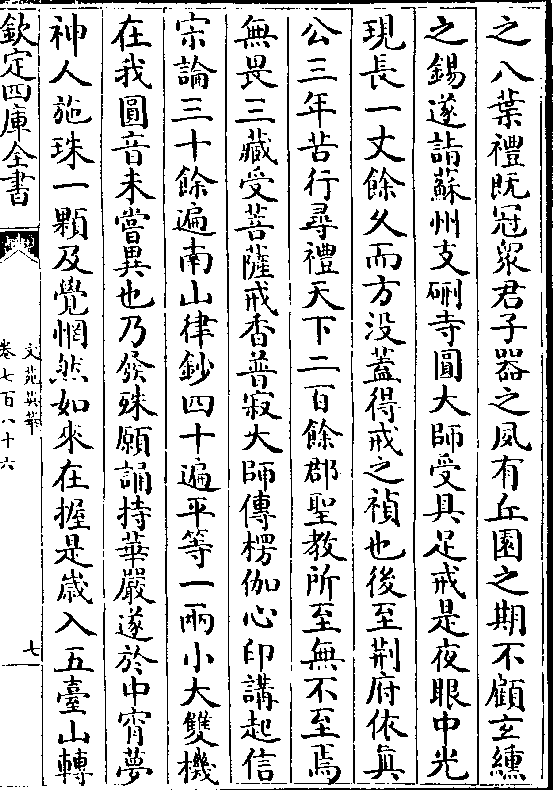 之八葉禮既冠衆君子器之夙有丘園之期不顧玄纁
之錫遂詣蘇州支硎寺圓大師受具足戒是夜眼中光
現長一丈餘久而方没蓋得戒之禎也後至荆府依真
公三年苦行尋禮天下二百餘郡聖教所至無不至焉
無畏三藏受菩薩戒香普寂大師傳楞伽心印講起信
宗論三十餘遍南山律鈔四十遍平等一兩小大雙機
在我圓音未嘗異也乃發殊願誦持華嚴遂於中宵夢
神人施珠一顆及覺惘然如來在握是歲入五臺山轉
欽定四庫全書
文苑英華
卷七百八十六
七